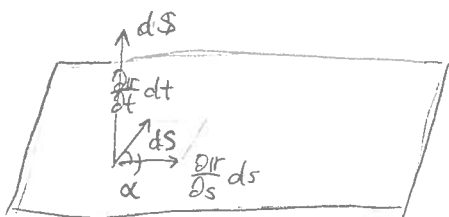 d$
∂r/∂t dt
dS
α
∂r/∂s ds